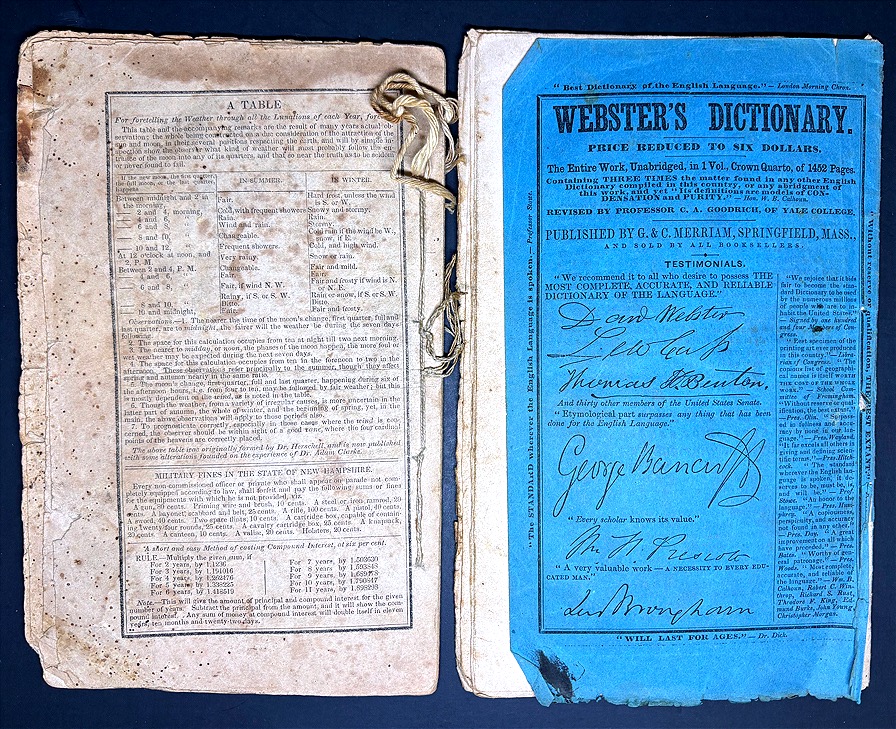 A TABLE
For foretelling the Weather through all the Lunations of each Year, forever.
This table and the accompanying remarks are the result of many years actual ob-
servation; the whole being constructed on a due consideration of the attraction of the
sun and moon, in their several positions respecting the earth, and will by simple in-
spection show the observer what kind of weather will most probably follow the en-
trance of the moon into any of its quarters, and that so near the truth as to be seldom
or never found to fail.
If the new moon, the first quarter, the full moon, or the last quarter,
IN SUMMER.
IN WINTER.
Between midnight and 2 in the morning, Fair. Hard frost, unless the wind is S. or W.
2 and 4, morning, Cold, with frequent showers Snowy and stormy.
4 and 6, Rain. Rain.
6 and 8, Wind and rain. Stormy.
8 and 10, Changeable. Cold rain if the wind be W., snow, if E.
10 and 12, Frequent showers. Cold, and high wind.
At 12 o'clock at noon, and 2, P. M. Very rainy. Snow or rain.
Between 2 and 4, P. M. Changeable. Fair and mild.
4 and 6, Fair. Fair.
6 and 8, Fair, if wind N. W. Fair and frosty if wind is N. or N. E.
Rainy, if S. or S. W. Rain or snow, if S. or S. W.
8 and 10, Ditto. Ditto.
10 and midnight, Fair. Fair and frosty.
Observations.—1. The nearer the time of the moon's change, first quarter, full and
last quarter, are to midnight, the fairer will the weather be during the seven days
following.
2. The space for this calculation occupies from ten at night till two next morning.
3. The nearer to midday, or noon, the phases of the moon happen, the more foul or
wet weather may be expected during the next seven days.
4. The space for this calculation occupies from ten in the forenoon to two in the
afternoon. These observations refer principally to the summer, though they affect
spring and autumn nearly in the same ratio.
5. The moon's change, first quarter, full and last quarter, happening during six of
the afternoon hours, i.e. from four to ten, may be followed by fair weather; but this
is mostly dependent on the wind, as is noted in the table.
6. Though the weather, from a variety of irregular causes, is more uncertain in the
latter part of autumn, the whole of winter, and the beginning of spring, yet, in the
main, the above observations will apply to those periods also.
7. To prognosticate correctly, especially in those cases where the wind is con-
cerned, the observer should be within sight of a good vane, where the four cardinal
points of the heavens are correctly placed.
The above table was originally formed by Dr. Herschell, and is now published
with some alterations founded on the experience of Dr. Adam Clarke.
MILITARY FINES IN THE STATE OF NEW-HAMPSHIRE.
Every non-commissioned officer or private who shall appear on parade not com-
pletely equipped according to law, shall forfeit and pay the following sums or fines
for the equipments with which he is not provided, viz.
A gun, 80 cents. Priming wire and brush, 10 cents. A steel or iron ramrod, 20
cents. A bayonet, scabbard and belt, 25 cents. A rifle, 100 cents. A pistol, 40 cents.
A sword, 40 cents. Two spare flints, 10 cents. A cartridge box, capable of contain-
ing twenty four rounds, 25 cents. A cavalry cartridge box, 25 cents. A knapsack,
20 cents. A canteen, 10 cents. A valise, 20 cents. Holsters, 20 cents.
A short and easy Method of casting Compound Interest, at six per cent.
RULE—Multiply the given sum, if
For 2 years, by 1.1236
For 3 years, by 1.191016
For 4 years, by 1.262476
For 5 years, by 1.338225
For 6 years, by 1.418519
For 7 years, by 1.503630
For 8 years, by 1.593848
For 9 years, by 1.689578
For 10 years, by 1.790847
For 11 years, by 1.898298
Note.—This will give the amount of principal and compound interest for the given
number of years. Subtract the principal from the amount, and it will show the com-
pound interest. Any sum of money at compound interest will double itself in eleven
years, ten months and twenty-two days.
"Best Dictionary of the English Language."—London Morning Chron.
WEBSTER'S DICTIONARY.
PRICE REDUCED TO SIX DOLLARS,
The Entire Work, Unabridged, in 1 Vol., Crown Quarto, of 1452 Pages
Containing THREE TIMES the matter found in any other English
Dictionary compiled in this country, or any abridgment of
this work, and yet "Its definitions are models of CON-
DENSATION and PURITY."—Hon. W. B. Calhoun.
REVISED BY PROFESSOR C. A. GOODRICH, OF YALE COLLEGE.
PUBLISHED BY G. & C. MERRIAM, SPRINGFIELD, MASS.,
AND SOLD BY ALL BOOKSELLERS.
TESTIMONIALS.
"We recommend it to all who desire to possess THE
MOST COMPLETE, ACCURATE, AND RELIABLE
DICTIONARY OF THE LANGUAGE."
Dan'l Webster
Lew Cass
Thomas H. Benton,
And thirty other members of the United States Senate.
"Etymological part surpasses any thing that has been
done for the English Language."
George Bancroft
"Every scholar knows its value."
Wm H. Prescott
"A very valuable work—A NECESSITY TO EVERY EDU-
CATED MAN."
Lord Brougham
"We rejoice that it bids
fair to become the stan-
dard Dictionary to be used
by the numerous millions
of people who are to in-
habit the United States."
—Signed by one hundred
and four Members of Con-
gress.
"Best specimen of the
printing art ever produced
in this country."—Libra-
rian of Congress. "The
copious list of geographi-
cal names is itself WORTH
THE COST OF THE WHOLE
WORK."—School Com-
mittee of Framingham.
"Without reserve or qual-
ification, the best extant."
—Pres. Olin. "Surpassed
in fullness and accu-
racy by none in our lan-
guage."—Pres. Wayland.
"It far excels all others in
giving and defining scien-
tific terms."—Pres. Hitch-
cock. "The standard
wherever the English lan-
guage is spoken, it de-
serves to be, must be, is,
and will be."—Prof.
Stowe. "An honor to the
language."—Pres. Hum-
phrey. "A copiousness,
perspicuity, and accuracy
not found in any other."
—Pres. Day. "A great
improvement on all which
have preceded."—Pres.
Bates. "Worthy of gene-
ral patronage."—Pres.
Woods. "Most complete,
accurate, and reliable of
the language."—Wm. B.
Calhoun, Robert C. Win-
throp, Richard S. Rust,
Theodore F. King, Ed-
mund Burke, John Young,
Christopher Morgan.
"The STANDARD wherever the English Language is spoken—Professor Stowe.
"Without reserve or qualification, THE BEST EXTANT."
"WILL LAST FOR AGES."—Dr. Dick.